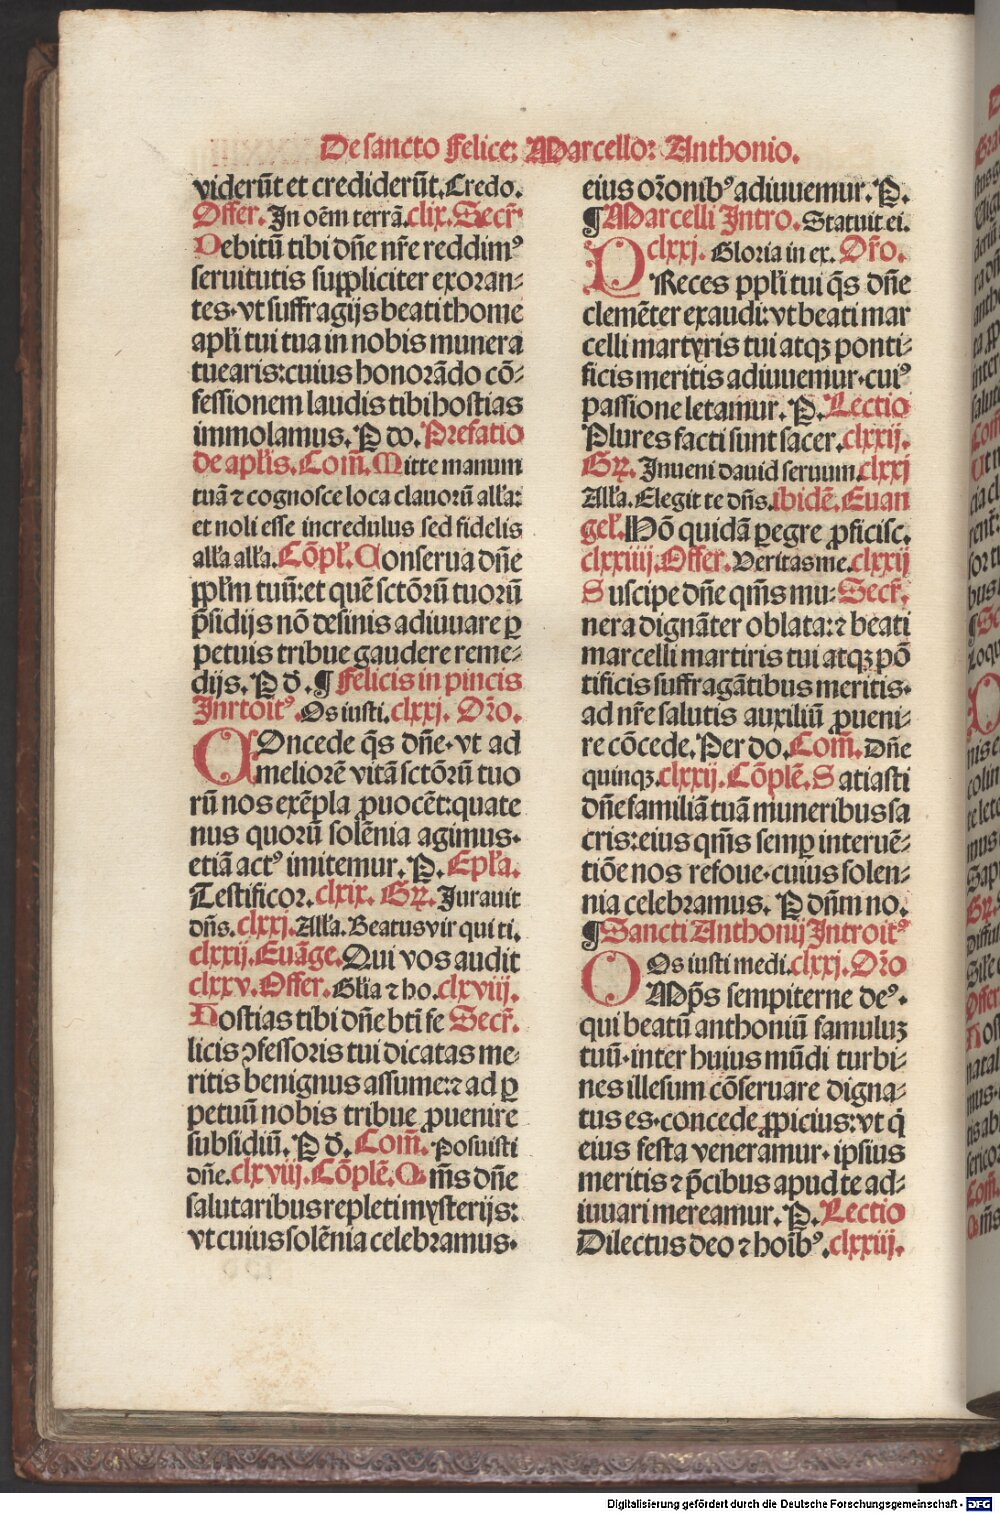 De sancto Felice: Marcello: Anthonio.
viderūt et crediderūt. Credo.
Offer. In oēm terrā. clix. Secr̄
Debitū tibi dn̄e nr̄e reddimꝰ
seruitutis suppliciter exoran⸗
tes· vt suffragijs beati thome
apl̄i tui tua in nobis munera
tuearis: cuius honorādo cō⸗
fessionem laudis tibi hostias
immolamus. P do. Prefatio
de apl̄is. Com̄. Mitte manum
tuā ⁊ cognosce loca clauorū all̄a:
et noli esse incredulus sed fidelis
all̄a all̄a. Cōpl̄. Conserua dn̄e
ppl̄m tuū: et quē sctōrū tuorū
p̄sidijs nō desinis adiuuare ꝑ
petuis tribue gaudere reme⸗
dijs. P d̄. ¶ Felicis in pincis
Inrtoitꝰ. Os iusti. clxxj. Or̄o.
COncede q̄s dn̄e· vt ad
meliorē vitā sctōrū tuo
rū nos exēpla ꝓuocēt: quate
nus quorū solēnia agimus·
etiā actꝰ imitemur. P. Epl̄a.
Testificor. clxix. Gꝝ. Iurauit
dn̄s. clxxj. All̄a. Beatus vir qui ti.
clxxij. Euāge. Qui vos audit
clxxv. Offer. Gl̄ia ⁊ ho. clxviij.
Hostias tibi dn̄e bt̄i fe Secr̄.
licis ꝯfessoris tui dicatas me⸗
ritis benignus assume: ⁊ ad ꝑ
petuū nobis tribue ꝓuenire
subsidiū. P d̄. Com̄. Posuisti
dn̄e. clxviij. Cōplē. Qm̄s dn̄e
salutaribus repleti mysterijs:
vt cuius solēnia celebramus·
eius or̄onibꝰ adiuuemur. P.
¶ Marcelli Intro. Statuit ei.
clxxj. Gloria in ex. Or̄o.
PReces ppl̄i tui q̄s dn̄e
clemēter exaudi: vt beati mar
celli martyris tui atqꝫ ponti⸗
ficis meritis adiuuemur· cuiꝰ
passione letamur. P. Lectio
Plures facti sunt sacer. clxxij.
Gꝝ. Inueni dauid seruum. clxxj
All̄a. Elegit te dn̄s. ibidē. Euan
gel̄. Hō quidā ꝑegre ꝓficisc.
clxxiiij. Offer. Veritas me. clxxij
Suscipe dn̄e qm̄s mu: Secr̄.
nera dignāter oblata: ⁊ beati
marcelli martiris tui atqꝫ pō
tificis suffragātibus meritis·
ad nr̄e salutis auxiliū ꝓueni⸗
re cōcede. Per do. Com̄. Dn̄e
quinqꝫ. clxxij. Cōplē. Satiasti
dn̄e familiā tuā muneribus sa
cris: eius qm̄s semꝑ interuē⸗
tiōe nos refoue· cuius solen⸗
nia celebramus. P dn̄m no.
¶ Sancti Anthonij Introitꝰ
Os iusti medi. clxxj. Or̄o
OMp̄s sempiterne deꝰ·
qui beatū anthoniū famuluꝫ
tuū· inter huius mūdi turbi⸗
nes illesum cōseruare digna⸗
tus es· concede ꝓpicius: vt q̄
eius festa veneramur· ipsius
meritis ⁊ p̄cibus apud te ad⸗
iuuari mereamur. P. Lectio
Dilectus deo ⁊ hoīb̄ꝰ. clxxiij.
Digitalisierung gefördert durch die Deutsche Forschungsgemeinschaft - DFG